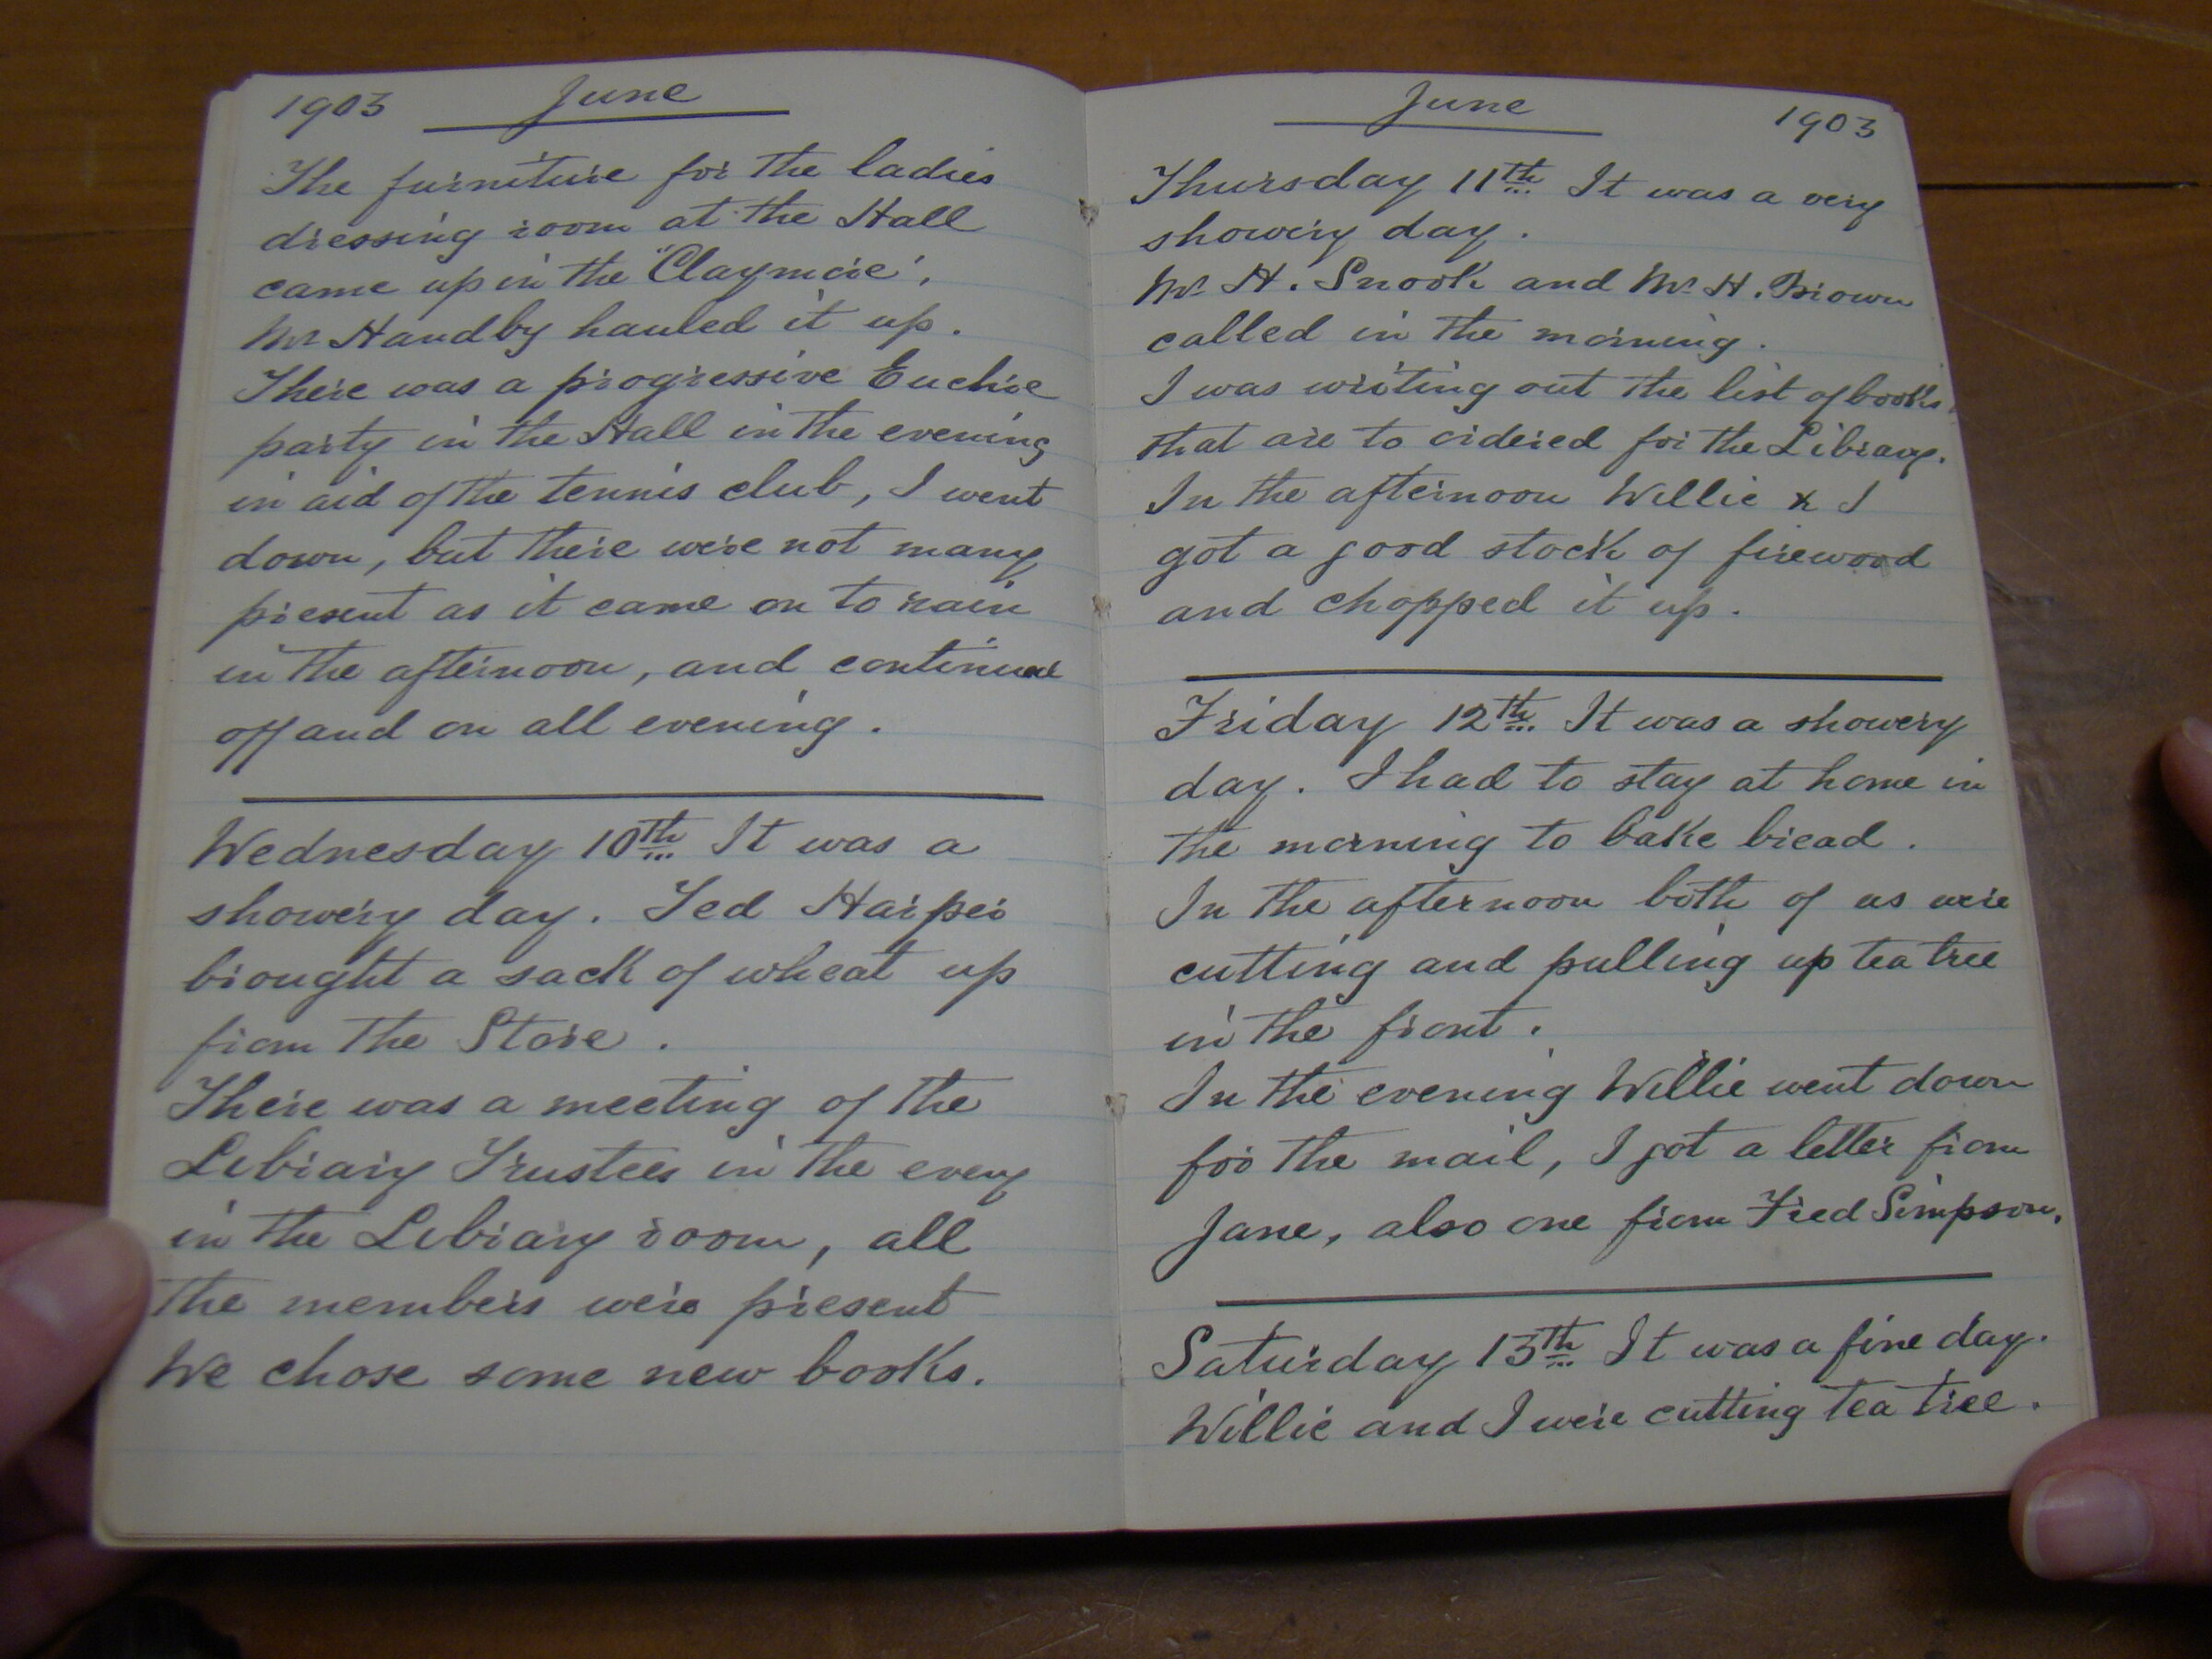 1903 June
The furniture for the ladies
dressing room at the Hall
came up in the "Claymore".
Mr Handby hauled it up.
There was a progressive Euchre
party in the Hall in the evening
in aid of the tennis club, I went
down, but there were not many
present as it came on to rain
in the afternoon, and continued
off and on all evening.
Wednesday 10th It was a
showery day. Ted Harper
brought a sack of wheat up
from the Store.
There was a meeting of the
Library Trustees in the eveng
in the Library room, all
the members were present
We chose some new books.
June 1903
Thursday 11th It was a very
showery day.
Mr H. Snook and Mr H. Brown
called in the morning.
I was writing out the list of books,
that are to ordered for the Library.
In the afternoon Willie & I
got a good stock of firewood
and chopped it up.
Friday 12th It was a showery
day. I had to stay at home in
the morning to bake bread.
In the afternoon both of us were
cutting and pulling up tea tree
in the front.
In the evening Willie went down
for the mail, I got a letter from
Jane, also one from Fred Simpson.
Saturday 13th It was a fine day.
Willie and I were cutting tea tree.